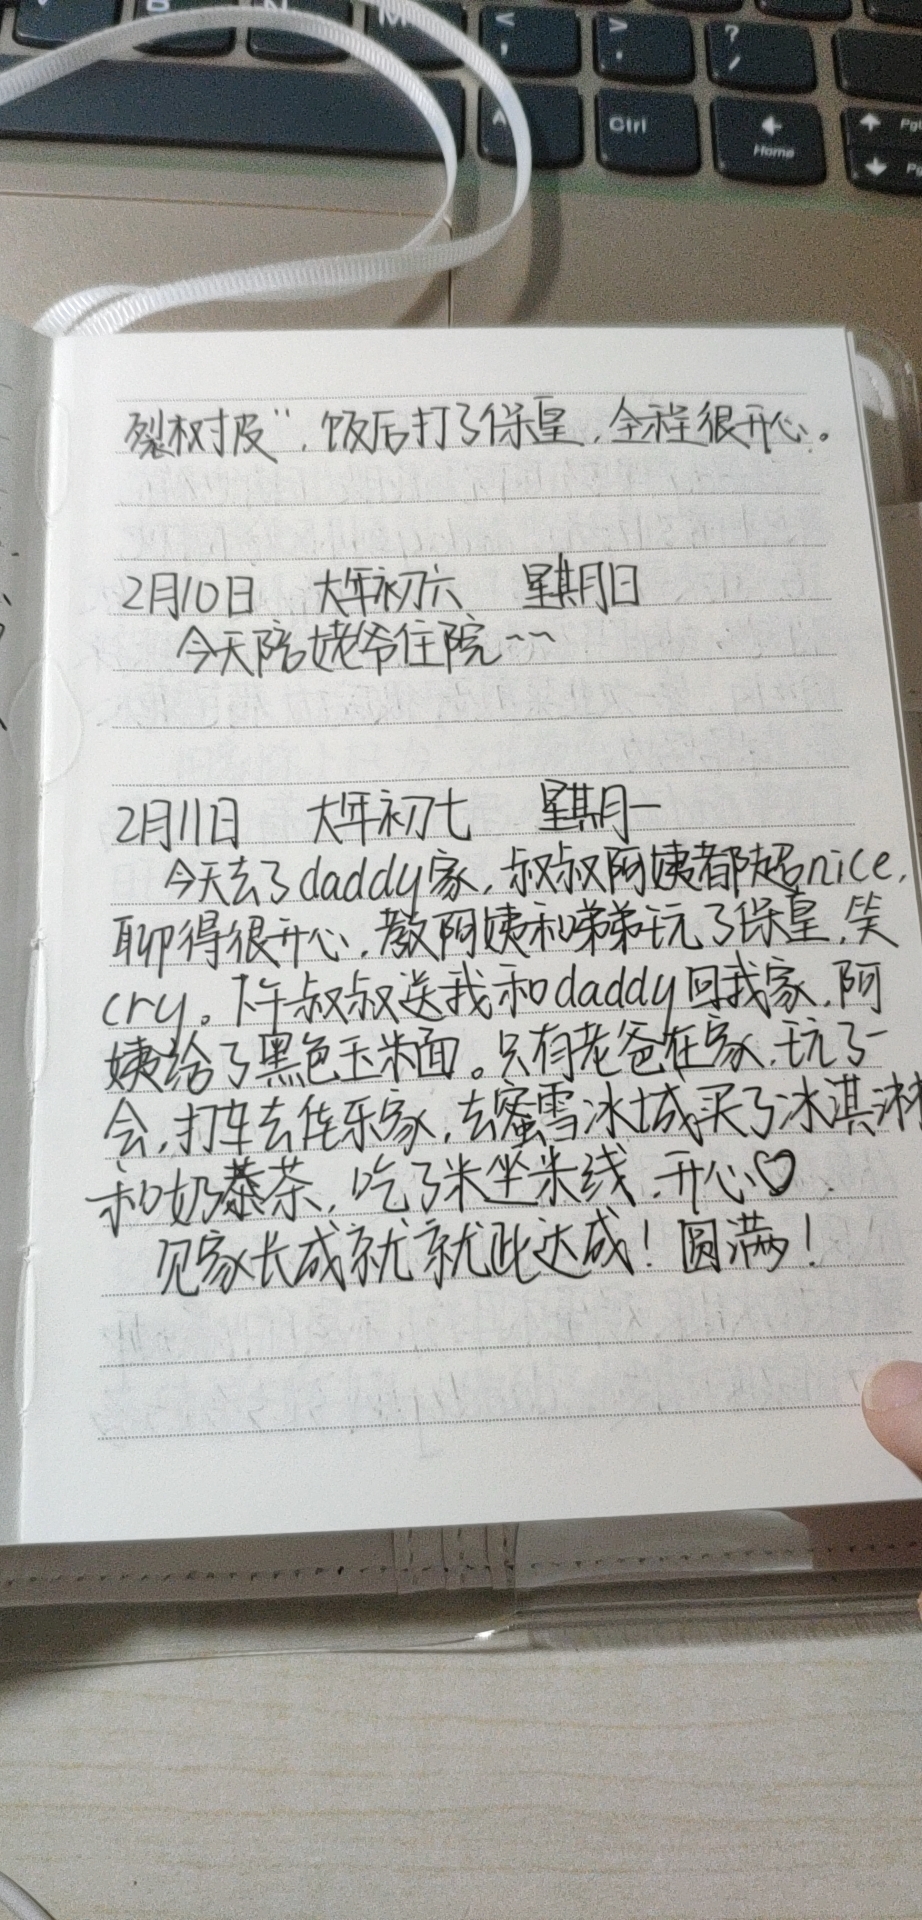 M
<
,
>
.
?
/
A
Ctrl
Home
裂树皮”，饭后打了保皇，全程很开心。
2月10日 大年初六 星期日
今天陪姥爷住院~~
2月11日 大年初七 星期一
今天去了daddy家，叔叔阿姨都超nice，
聊得很开心，教阿姨和弟弟玩了保皇，笑
cry。下午叔叔送我和daddy回我家，阿
姨给了黑色玉米面。只有老爸在家，玩了一
会，打车去佳乐家，去蜜雪冰城买了冰淇淋
和奶茶，吃了米坐米线，开心♡
见家长成就就此达成！圆满！